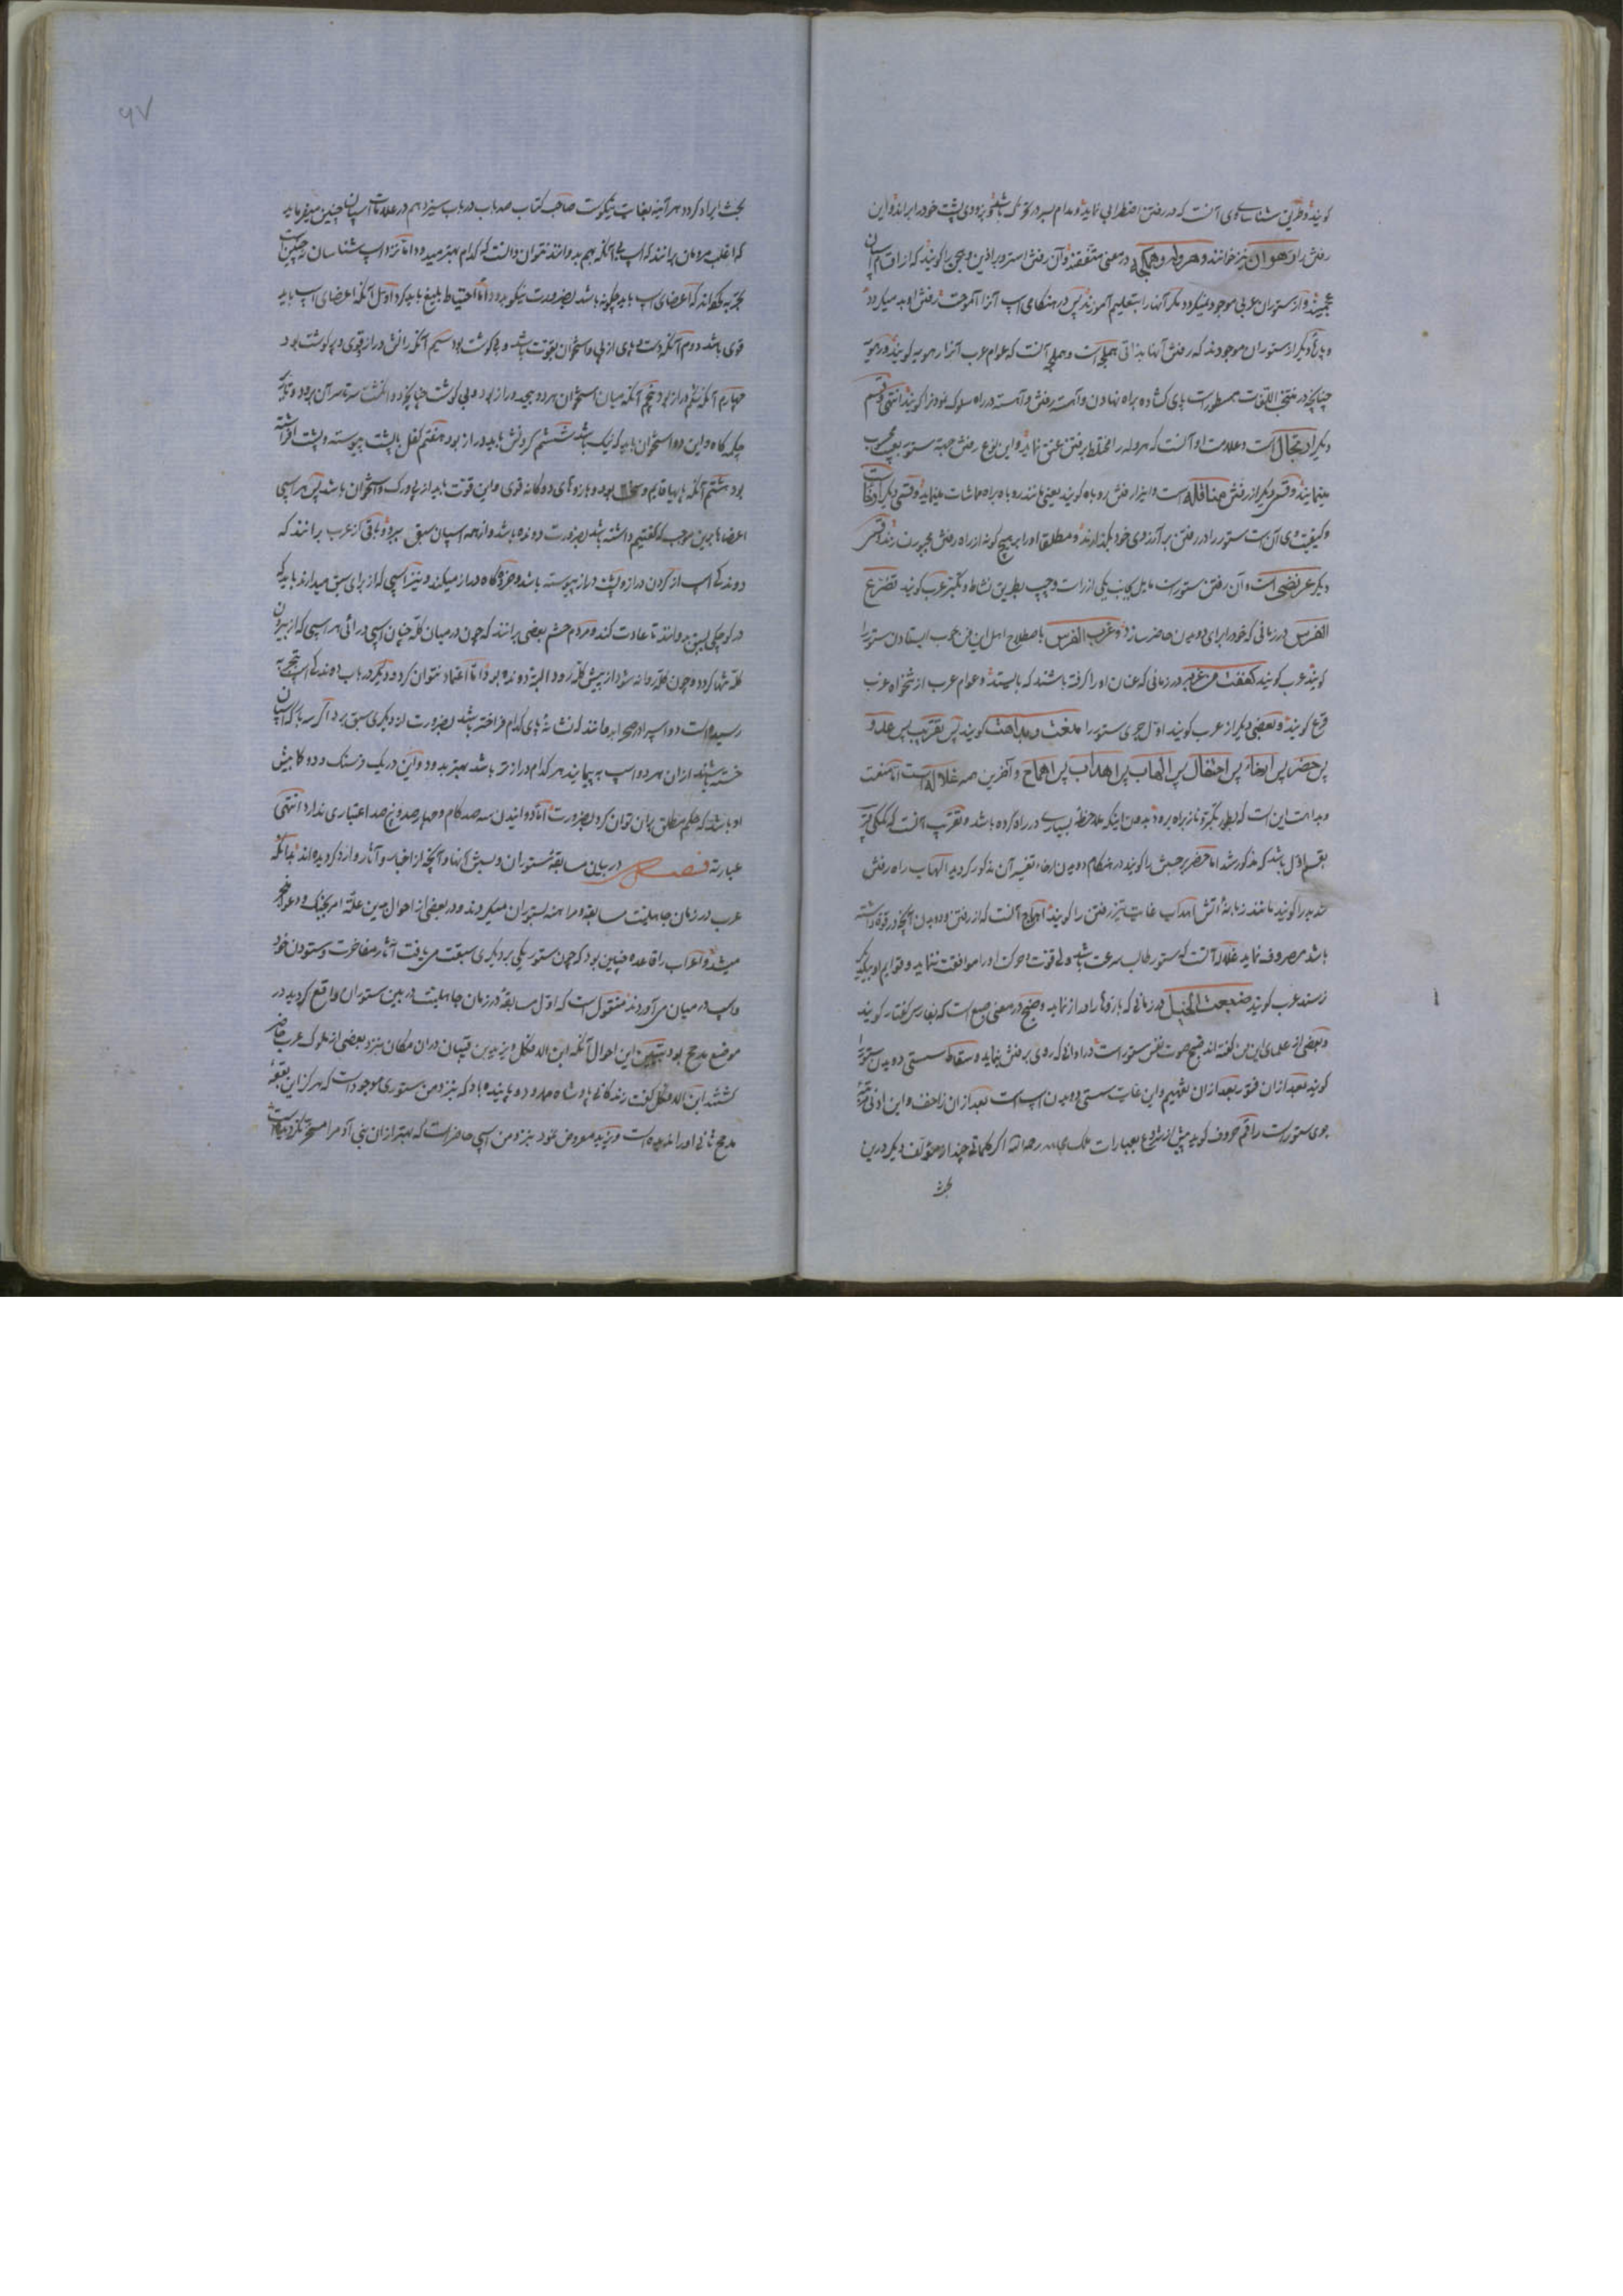 کویند و طریق شناسائی وی آنست که در رفتن اضطرابی نماید و مدام سر در تحرک باشد و بزودی پشت خود را براند و این
رفتن را رهوان نیز خوانند و هروله و هملجه در معنی متفقند و آن رفتن استر و براذین و هجین را کویند که از اقسام اسپان
عجمیند و از ستوران عربی موجود نمیکردد مکر آنها را بتعلیم آموزند پس در هنکامی اسپ آنرا آموخت رفتن او بد میکردد
و بعضی دیکر از ستوران موجودند که رفتن آنها بذاتی هملجه است و هملجه آنست که عوام عرب آنرا رهویه کویند و رهویه
چنانچه در منتخب اللغات مسطور است پای کشاده براه نهادن و آهسته رفتن و آهسته در راه سلوک نمودنرا کویند انتهی و قسم
دیکر ارتجال است و علامت او آنست که هروله را مختلط برفتن عنق نماید و این نوع رفتن جهة ستور بعیب محسوب
مینمایند و قسمی دیکر از رفتن مناقله است و اینرا رفتن روباه کویند یعنی مانند روباه براه مماشات مینماید و قسمی دیکر ارخاست
و کیفیت وی آن است ستور را در رفتن بر آرزوی خود بکذارند و مطلقا او را بر هیچ کونه از راه رفتن مجبور نسازند و قسمی
دیکر عرضی است و آن رفتن ستور است مایل بجانب یکی از راست و چپ بطریق نشاط و تکبر عرب کویند تضرع
الفرس در زمانی که خود را برای دویدن حاضر سازد و غرب الفرس باصطلاح اهل این فن بحرب ایستادن ستور را
کویند عرب کویند کففت من غربه در زمانی که عنان او را کرفته باشند که بایستد و عوام عرب از شخواه عرب
قرع کویند و بعضی دیکر از عرب کویند اول جری ستور را منعت و بداهت کویند پس تقریب پس علو و
پس حضر پس ارخاء پس احتفال پس الهاب پس اهداب پس اهماج و آخرین همه غلاله است اما منعت
و بداهت این است که بطور تکبر و ناز براه برود بدون اینکه ملاحظهٔ بسیاری در راه کرده باشد و تقریب آنست که کمکی قریب
بقسم اول باشد که مذکور شد اما حضر پر جهش را کویند در هنکام دویدن ارخاء تفسیر آن مذکور کردید الهاب راه رفتن
شدید را کویند مانند زبانهٔ آتش اهداب غایت تیز رفتن را کویند اهماج آنست که از رفتن و دویدن آنچه در قوه داشته
باشد مصروف نماید غلاله آنست که ستور طالب سرعت باشد ولی قوت و حرکت او را موافقت ننماید و قوایم او بیکدیکر
نرسند عرب کویند ضبحت الخیل در زمانی که بازوها را دراز نماید و ضبح در معنی ضبع است که بفارسی کفتار کویند
و بعضی از علمای این فن کفته اند ضبح صوت نفس ستور است در اوانی که روی برفتن بنماید و سقاط سستی دویدن ستور را
کویند بعد از ان فتور بعد از ان تفهیم و این غایت سستی دویدن اسپ است بعد از ان زاحف و این ادنی مرتبهٔ
جری ستور است راقم حروف کوید پیش از شروع بعبارات ملک مجاهد رحمه الله اکر کلماتی چند از مؤلف دیکر درین
بحث
۹۷
بحث ایراد کردد هر آینه بغایت نیکوست صاحب کتاب صد باب در باب سیزدهم در علامات اسپان چنین میفرماید
که اغلب مردمان برانند که اسپ بی آنکه بهم بدوانند نتوان دانست که کدام بهتر میدود اما نزد اسپ شناسان چنین است
بتجربه کفته اند که اعضای اسپ باید چکونه باشد بضرورت نیکو بدود اما احتیاط بلیغ باید کرد اول آنکه اعضای اسپ باید
قوی باشد دوم آنکه دست و پای از پی و استخوان بقوت باشد و بی کوشت بود سیم آنکه رانش دراز قوی و پر کوشت بود
چهارم آنکه شکم دراز بود پنجم آنکه میان استخوان هر دو بیجد دراز بود و بی کوشت چنانچه دو انکشت سرتاسر آن برود و تا بر
چکه کاه و این دو استخوان باید که نیک باشد ششم کردنش باید دراز بود هفتم کفل با پشت پیوسته و پشت افراشته
بود هشتم آنکه پایها قایم و سخت بود و بازوهای دوکانه قوی و این قوت باید از پی و رک و استخوان باشد پس هر اسپی
اعضاها برین موجب که کفتیم داشته باشد بضرورت دونده باشد و از همه اسپان سبق ببرد و باقی کز عرب برانند که
دوندکی اسپ از کردن دراز و پشت دراز پیوسته باشد و خردهٔ کاه دراز میکند و نیز اسپی که از برای سبق میدارند باید که
در کوچکی بسبق بدوانند تا عادت کند و مردم حشم بعضی برانند که چون در میان کلهٔ چنان اسپی درائی هر اسپی که از بیرون
کله تنها کردد و چون کله روانه شود از پیش کله رود البته دونده بود اما اعتماد نتوان کرد و دیکر در باب دوندکی اسپ بتجربه
رسیده است دو اسپ را در صحرا بدوانند که نشانهٔ پای کدام فراخته باشد بضرورت از دیکری سبق برد اکر سه بار که اسپان
خسته باشند از ان هر دو اسپ به پیمایند هر کدام درازتر باشد بهتر بدود و این در یک فرسنک و دو کما بیش
او باشد که حکم مطلق بران توان کرد بضرورت اما دوانیدن سه صد کام و چهار صد و پنج صد اعتباری ندارد انتهی
عبارته فصل در بیان مسابقهٔ ستوران و سبق آنها و آنچه از اخبار و آثار وارد کردیده اند بدانکه
عرب در زمان جاهلیت مسابقه و مراهنه بستوران میکردند و در بعضی از احوال همین علّة امر بجنک و دعوا منجر
میشد و اعراب را قاعده چنین بود که چون ستور یکی بر دیکری سبقت می یافت آثار مفاخرت و ستودن خود
و اسپ در میان می آوردند منقول است که اول مسابقهٔ در زمان جاهلیت در بین ستوران واقع کردید در
موضع مدحج بود تبیین این احوال آنکه ابن الدفکل و یزید بن قبیان دران مکان بنزد بعضی از ملوک عرب حاضر
کشتند ابن الدفکل کفت زندکانی پادشاه ممدود و پاینده باد که بنزد من ستوری موجود است که هرکز این بقعهٔ
مدحج ثانی او را ندیده است و یزید معروض نمود بنزد من اسپی حاضر است که بهتر از ان بنی آدم را مسخر نکردیده است